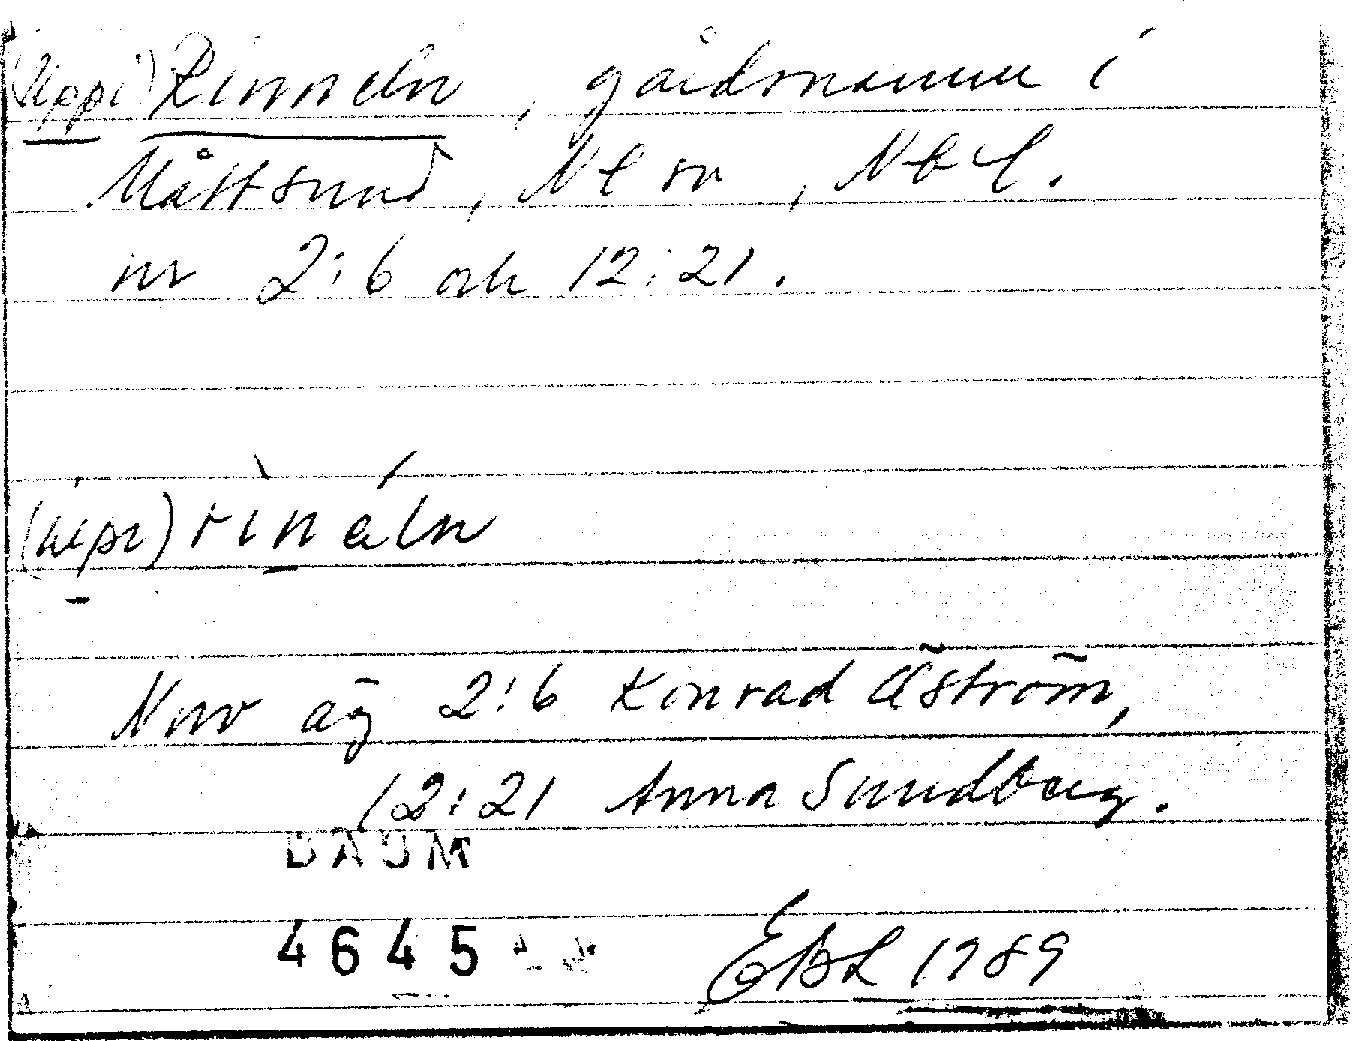 (Uppi) Rinneln, gårdsnamn i
Måttsund, Nl sn, Nb l.
nr 2:6 och 12:21.
rìnáln
Nuv äg 2:6 Konrad Åström,
12:21 Anna Sundberg.
DAUM
4645
EBL 1989